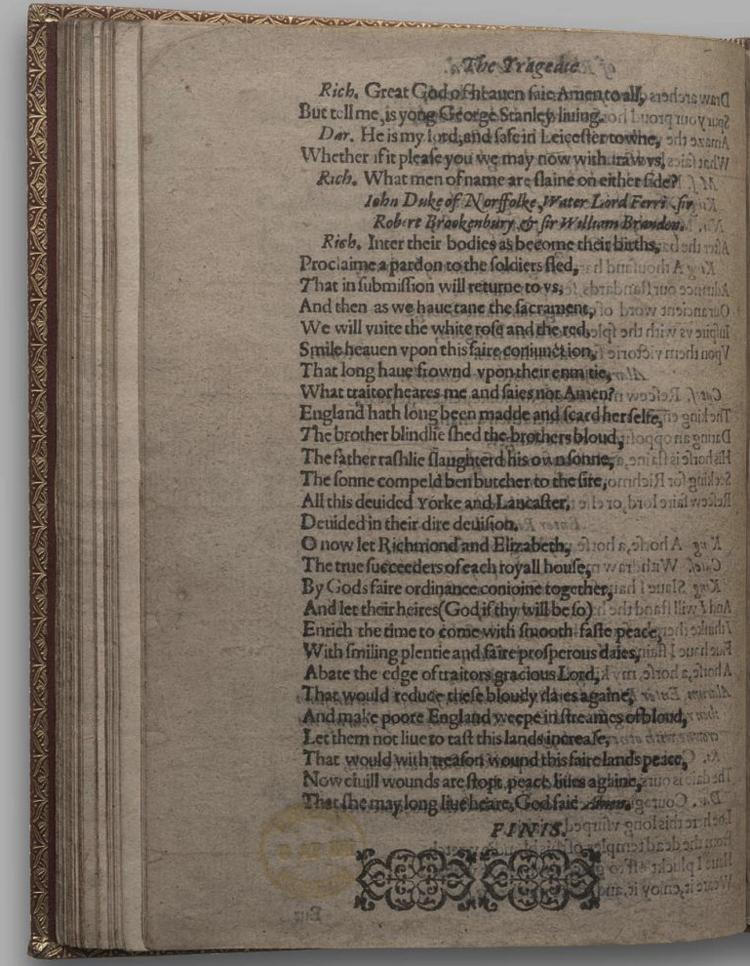 The Tragedie
Rich. Great God of heauen saie Amen to all,
But tell me, is yong George Stanley liuing.
Dar. He is my lord, and safe in Leicester towne,
Whether if it please you we may now withdraw vs,
Rich. What men of name are slaine on either side?
Iohn Duke of Norffolke, Water Lord Ferris, sir
Robert Brookenbury, & sir William Brandon.
Rich. Inter their bodies as become their births,
Proclaime a pardon to the soldiers fled,
That in submission will returne to vs,
And then as we haue tane the sacrament,
We will vnite the white rose and the red,
Smile heauen vpon this faire coniunction,
That long haue frownd vpon their enmitie,
What traitor heares me and saies not Amen?
England hath long been madde and scard her selfe,
The brother blindlie shed the brothers bloud,
The father rashlie slaughterd his own sonne,
The sonne compeld ben butcher to the sire,
All this deuided Yorke and Lancaster,
Deuided in their dire deuision.
O now let Richmond and Elizabeth,
The true succeeders of each royall house,
By Gods faire ordinance conioine together,
And let their heires (God if thy will be so)
Enrich the time to come with smooth faste peace,
With smiling plentie and faire prosperous daies,
Abate the edge of traitors gracious Lord,
That would reduce these bloudy daies againe,
And make poore England weepe in streames of bloud,
Let them not liue to tast this lands increase,
That would with treason wound this faire lands peace,
Now ciuill wounds are stopt, peace liues againe,
That she may long liue heare, God saie Amen.
FINIS.